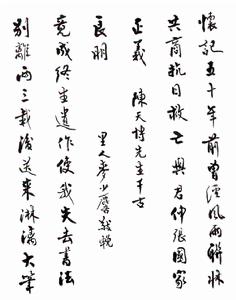 懷記五十年前曾經風雨聯牀
共商抗日救亡與君伸張國家
正義
陳天博先生千古
別離兩三載後送來淋漓大筆
竟成終生遺作使我失去書法
長明
里人麥少麐敬輓